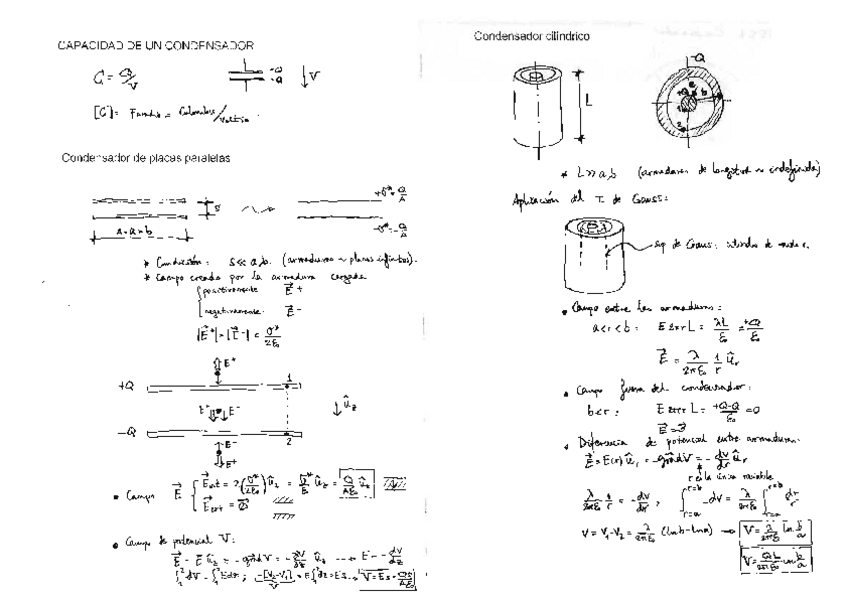 CAPACIDAD DE UN CONDENSADOR
C = Q/V
-Q
-Q
V
[C] = Faradio = Culombio/Voltio
Condensador de placas paralelas
s
+σ* = Q/A
-σ* = -Q/A
A = a × b
* Condición: s << a,b. (armaduras ~ placas infinitas).
* Campo creado por la armadura cargada
positivamente E⃗+
negativamente. E⃗-
|E⃗+| = |E⃗-| = σ*/2ε₀
E+
+Q 1
E+ E- û_z
-Q 2
E-
E+
• Campo E⃗ { E⃗int = 2(σ*/2ε₀) û_z = σ*/ε₀ û_z = Q/Aε₀ û_z
E⃗ext = 0⃗
• Campo de potencial V:
E⃗ = E û_z = -grad V = -dV/dz û_z → E = -dV/dz
∫₁² dV = -∫₁² E dz ; -[V₂-V₁] = E∫₁² dz = E s → V = E s = Qs/Aε₀
Condensador cilíndrico
L
-Q
+Q a b
1
2
* L >> a,b (armaduras de longitud ~ indefinida)
Aplicación del T. de Gauss:
sup de Gauss: cilindro de radio r.
• Campo entre las armaduras:
a < r < b : E 2πr L = λL/ε₀ = +Q/ε₀
E⃗ = λ/2πε₀ 1/r û_r
• Campo fuera del condensador:
b < r : E 2πr L = +Q-Q/ε₀ = 0
E⃗ = 0⃗
• Diferencia de potencial entre armaduras.
E⃗ = E(r) û_r = -grad V = -dV/dr û_r
r es la única variable
λ/2πε₀ 1/r = -dV/dr ; ∫_{r=a}^{r=b} -dV = λ/2πε₀ ∫_{r=a}^{r=b} dr/r
V = V₁-V₂ = λ/2πε₀ (Ln b - Ln a) → V = λ/2πε₀ Ln b/a
V = Q/L/2πε₀ Ln b/a